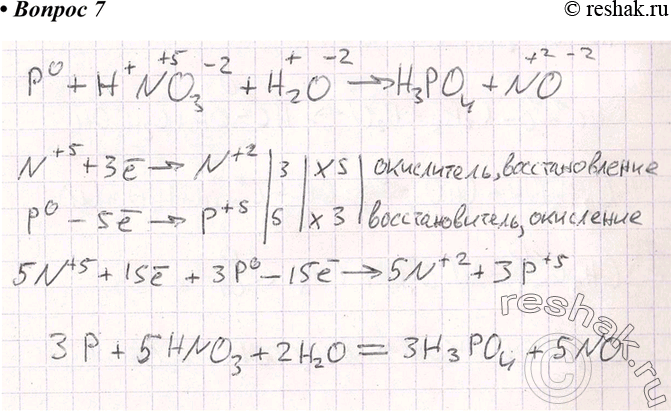 • Вопрос 7
© reshak.ru
P⁰ + H⁺N⁺⁵O₃⁻² + H₂⁺O⁻² → H₃PO₄ + N⁺²O⁻²
N⁺⁵ + 3ē → N⁺² | 3 | x5 | окислитель, восстановление
P⁰ - 5ē → P⁺⁵ | 5 | x3 | восстановитель, окисление
5N⁺⁵ + 15ē + 3P⁰ - 15ē → 5N⁺² + 3P⁺⁵
3P + 5HNO₃ + 2H₂O = 3H₃PO₄ + 5NO
reshak.ru